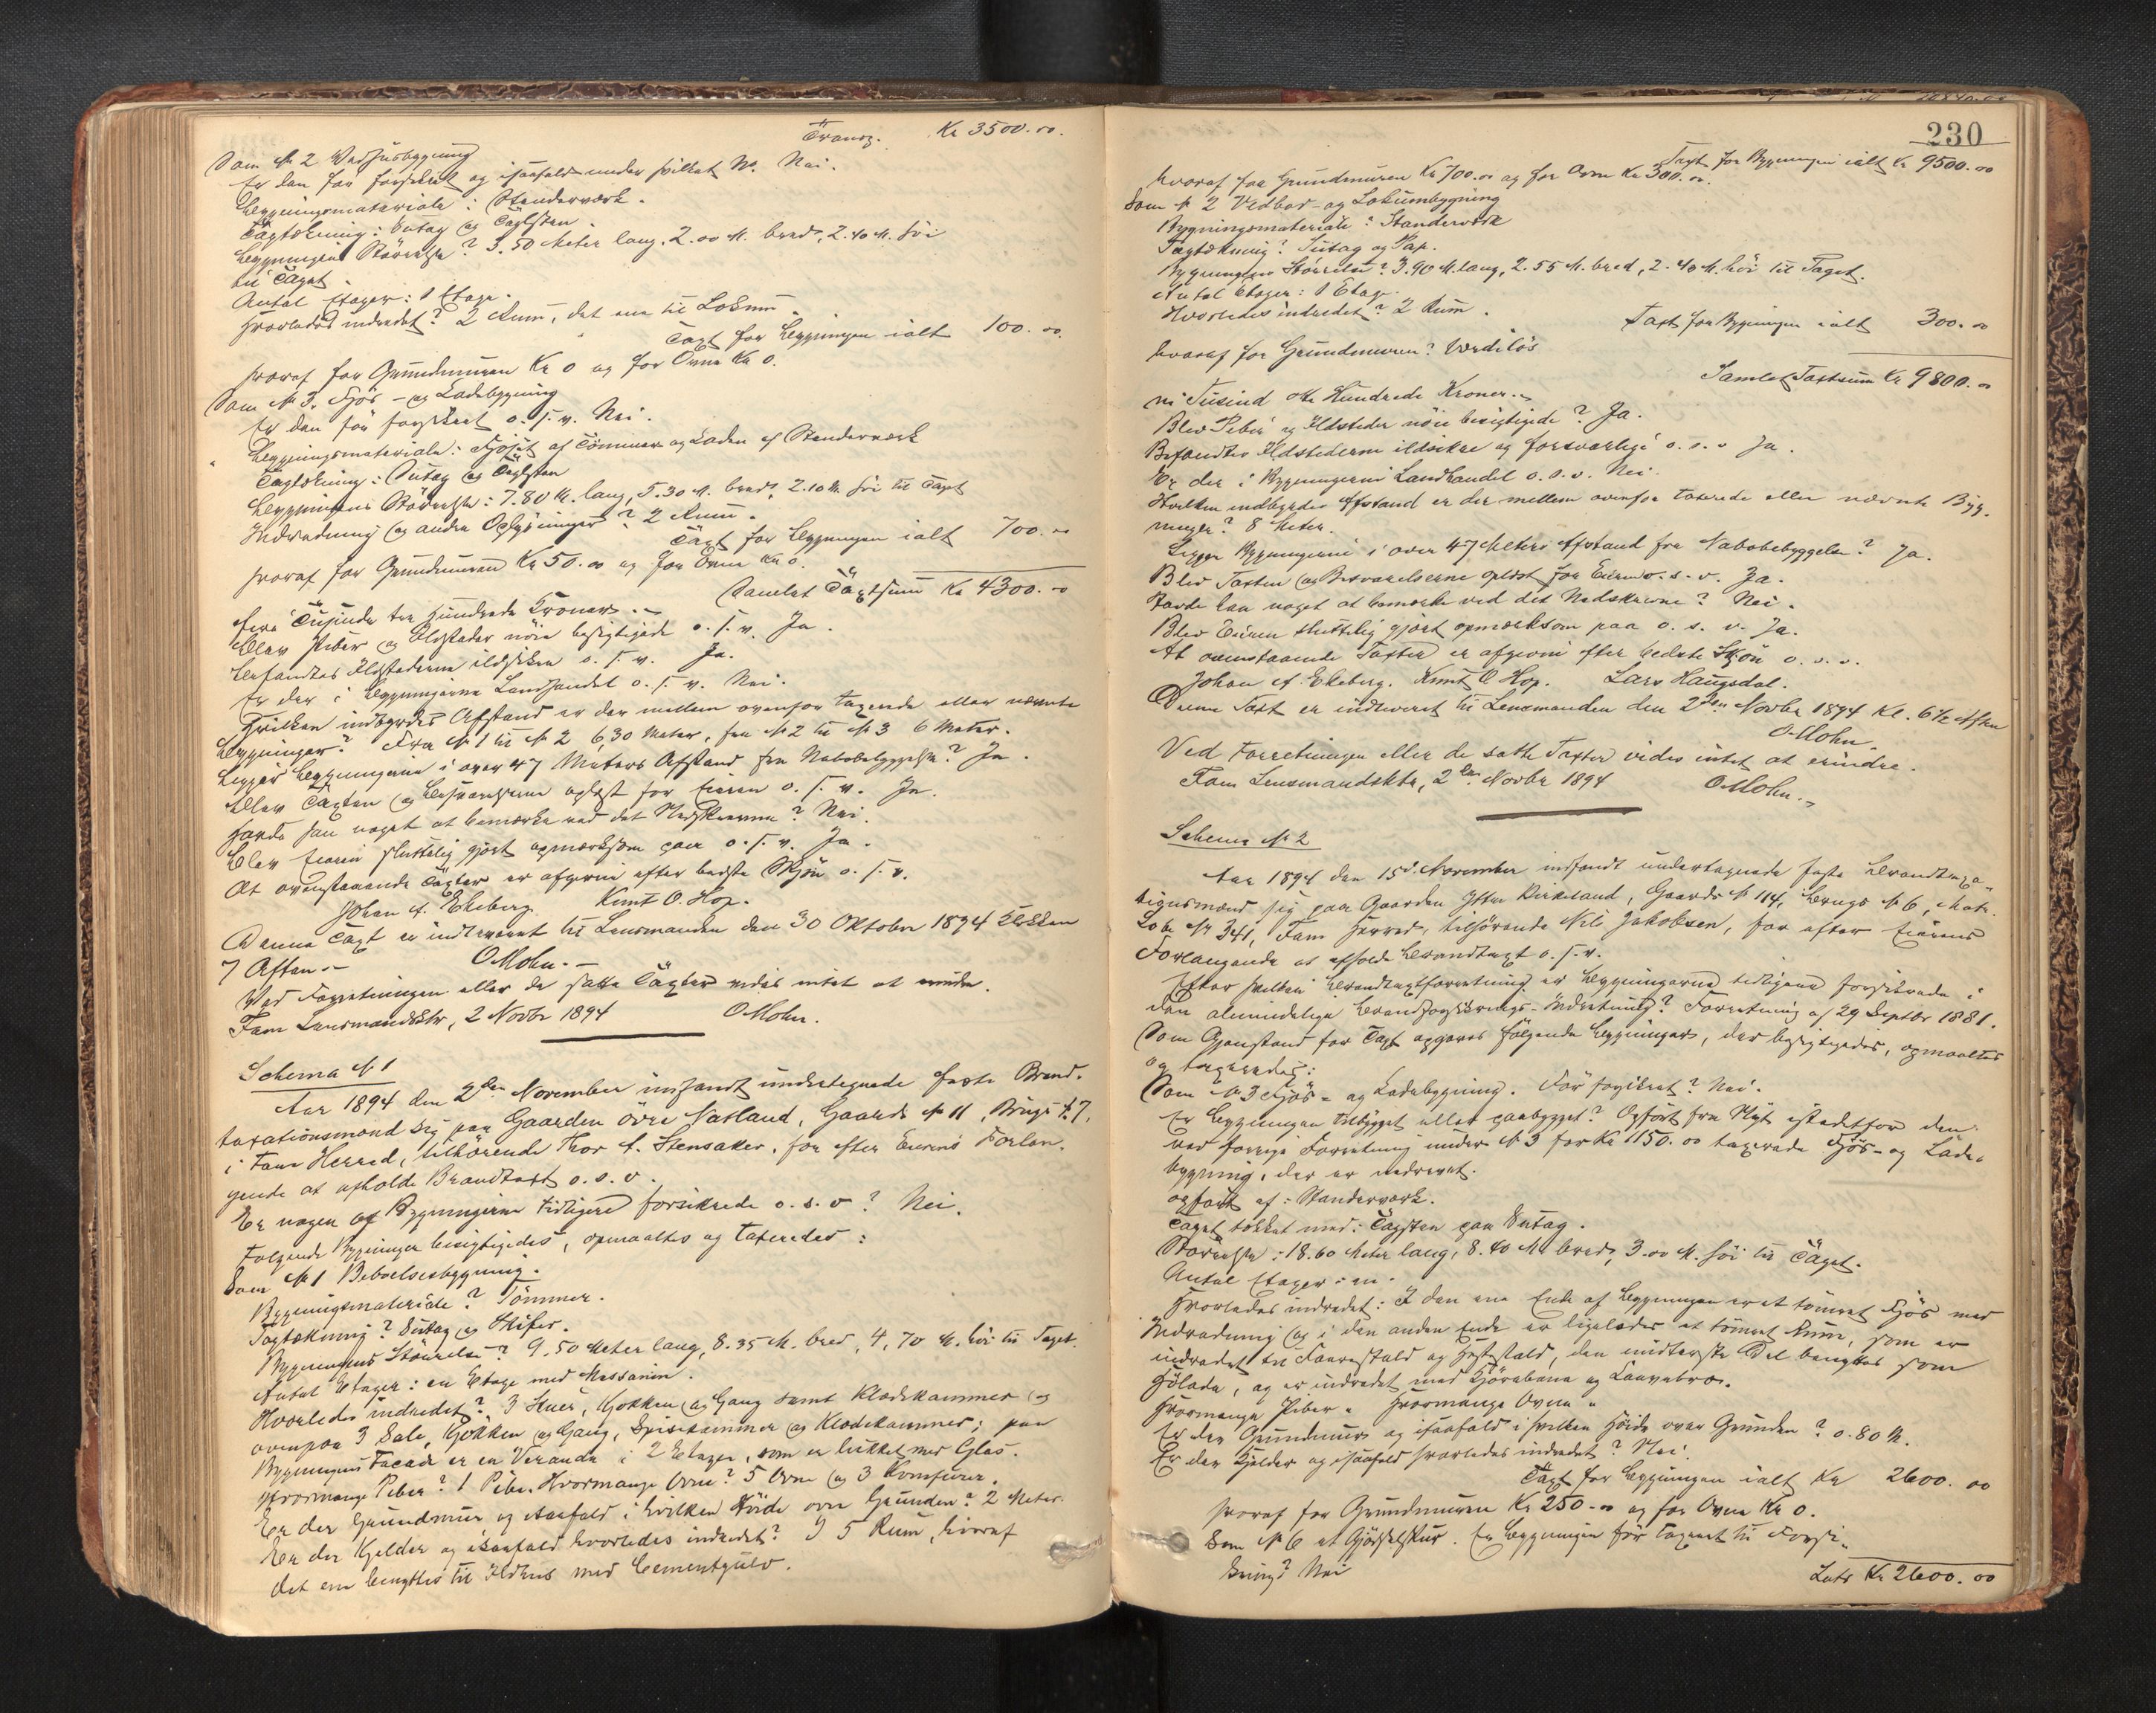 Transp. Kr 3500.00.
Som № 2 Vedhusbygning
Er den før forsikret og isaafald under hvilket №. Nei.
Bygningsmateriale: Stenderværk.
Tagtækning: Sutag og Taghsten.
Bygningens Størrelse? 3.50 Meter lang, 2.00 M. bred, 2.40 M. høi
til Taget.
Antal Etager: 1 Etage.
Hvorledes indredet? 2 Rum, det ene til Lokum.
Taxt for Bygningen ialt 100.00.
hvoraf for Grundmuren Kr 0 og for Ovne Kr 0.
Som № 3. Fjøs- og Ladebygning
Er den før forsikret o.s.v. Nei.
Bygningsmateriale: Fjøset af Tømmer og Laden af Stenderværk
Tagtækning: Sutag og Taghsten
Bygningens Størrelse: 7.80 M. lang, 5.30 M. bred, 2.10 M. høi til Taget
Indredning og andre Oplysninger? 2 Rum.
Taxt for Bygningen ialt 700.00
hvoraf for Grundmuren Kr 50.00 og for Ovne Kr 0.
Samlet Taxtsum Kr 4300.00
fire Tusinde tre Hundrede Kroner.-
Blev Piber og Ildsteder nøie besigtigede o.s.v. Ja.
Befandtes Ildstederne ildsikre o.s.v. Ja.
Er der i Bygningerne Landhandel o.s.v. Nei.
Hvilken indbyrdes Afstand er der mellem ovenfor taxerede eller nævnte
Bygninger? Fra № 1 til № 2 6,30 Meter, fra № 2 til № 3 6 Meter.
Ligger Bygningerne i over 47 Meters Afstand fra Nabobebyggelse? Ja.
Blev Taxten og Besvarelserne oplæst for Eieren o.s.v. Ja.
Havde han noget at bemærke ved det Nedskrevne? Nei.
Blev Eieren sluttelig gjort opmærksom paa o.s.v. Ja.
At ovenstaaende Taxter er afgivne efter bedste Skjøn o.s.v.
Johan A. Ekeberg. Knut O. Hop.
Denne Taxt er indleveret til Lensmanden den 30 Oktober 1894 Klokken
7 Aften.- O Mohn.-
Ved Forretningen eller de satte Taxter vides intet at erindre.
Fane Lensmandsktr, 2 Novbr 1894 O Mohn.
Schema № 1
Aar 1894 den 2den November indfandt undertegnede faste Brand-
taxationsmænd sig paa Gaarden Øvre Natland, Gaards № 11, Brugs № 7,
i Fane Herred, tilhørende Thor A. Stensaker, for efter Eierens Forlan-
gende at afholde Brandtaxt o.s.v.
Er nogen af Bygningerne tidligere forsikrede o.s.v? Nei.
Følgende Bygninger besigtigedes, opmaaltes og taxeredes:
Som № 1 Beboelsesbygning.
Bygningsmateriale? Tømmer.
Tagtækning? Sutag og Skifer.
Bygningens Størrelse? 9.50 Meter lang, 8.35 M. bred, 4,70 M. høi til Taget.
Antal Etager: en Etage med Messanin.
Hvorledes indredet? 3 Stuer, Kjøkken og Gang samt Klædekammer og
ovenpaa 3 Sale, Kjøkken og Gang, Spisekammer og Klædekammer; paa
Bygningens Facade er en Veranda i 2 Etager, som er lukket med Glas.
Hvormange Piber? 1 Pibe. Hvormange Ovne? 5 Ovne og 3 Komfurer.
Er der Grundmur og isaafald i hvilken Høide over Grunden? 2 Meter.
Er der Kjelder og isaafald hvorledes indredet? I 5 Rum, hvoraf
det ene benyttes til Ildhus med Cementgulv.
230
Taxt for Bygningen ialt Kr 9500.00
hvoraf for Grundmuren Kr 700.00 og for Ovne Kr 300.00.
Som № 2 Vedbod- og Lokumbygning
Bygningsmateriale: Stenderværk
Tagtækning? Sutag og Pap.
Bygningens Størrelse? 3.90 M. lang, 2.55 M. bred, 2.40 M. høi til Taget.
Antal Etager: 1 Etage.
Hvorledes indredet? 2 Rum.
Taxt for Bygningen ialt 300.00
hvoraf for Grundmuren? Værdiløs
Samlet Taxtsum Kr 9800.00
ni Tusind otte Hundrede Kroner.-
Blev Piber og Ildsteder nøie besigtigede? Ja.
Befandtes Ildstederne ildsikre og forsvarlige o.s.v Ja.
Er der i Bygningerne Landhandel o.s.v. Nei.
Hvilken indbyrdes Afstand er der mellem ovenfor taxerede eller nævnte Byg-
ninger? 8 Meter.
Ligger Bygningerne i over 47 Meters Afstand fra Nabobebyggelse? Ja.
Blev Taxten og Besvarelserne oplæst for Eieren o.s.v. Ja.
Havde han noget at bemærke ved det Nedskrevne? Nei.
Blev Eieren sluttelig gjort opmærksom paa o.s.v. Ja.
At ovenstaaende Taxter er afgivne efter bedste Skjøn o.s.v.
Johan A. Ekeberg. Knut O Hop. Lars Haugsdal.
Denne Taxt er indleveret til Lensmanden den 2den Novbr 1894 Kl. 6½ Aften
O Mohn.
Ved Forretningen eller de satte Taxter vides intet at erindre.
Fane Lensmandsktr, 2den Novbr 1894 O Mohn.-
Schema № 2
Aar 1894 den 15d. November indfandt undertegnede faste Brandtaxa-
tionsmænd sig paa Gaarden Ytre Birkeland, Gaards № 114, Brugs № 6, Matr.
Løbe № 341, Fane Herred, tilhørende Nils Jakobsen, for efter Eierens
Forlangende at afholde Brandtaxt o.s.v.
Efter hvilken Brandtaxtforretning er Bygningerne tidligere forsikrede i
den almindelige Brandforsikrings-Indretning? Forretning af 29 Septbr 1881.
Som Gjenstand for Taxt opgaves følgende Bygninger, der besigtigedes, opmaaltes
og taxeredes:
Som № 3 Fjøs- og Ladebygning. Før forsikret? Nei.
Er Bygningen tilbygget eller paabygget? Opført fra Nyt istedetfor den
ved forrige Forretning under № 3 for Kr 1150.00 taxerede Fjøs- og Lade-
bygning, der er nedrevet.
opført af: Stenderværk.
Taget tækket med: Tagsten paa Sutag.
Størrelse: 18.60 Meter lang, 8.40 M. bred, 3.00 M. høi til Taget.
Antal Etager: en.
Hvorledes indredet: I den ene Ende af Bygningen er et tømret Fjøs med
Indredning og i den anden Ende er ligeledes et tømret Rum, som er
indredet til Faarestald og Hestestald, den midterste Del benyttes som
Hølade, og er indredet med Kjørebane og Laavebro.
Hvormange Piber " Hvormange Ovne "
Er der Grundmur og isaafald i hvilken Høide over Grunden? 0.80 M.
Er der Kjelder og isaafald hvorledes indredet? Nei.
Taxt for Bygningen ialt Kr 2600.00
hvoraf for Grundmuren Kr 250.00 og for Ovne Kr 0.
Som № 6 et Gjødselskur. Er Bygningen før taxeret til Forsi-
kring? Nei
Lats Kr 2600.00